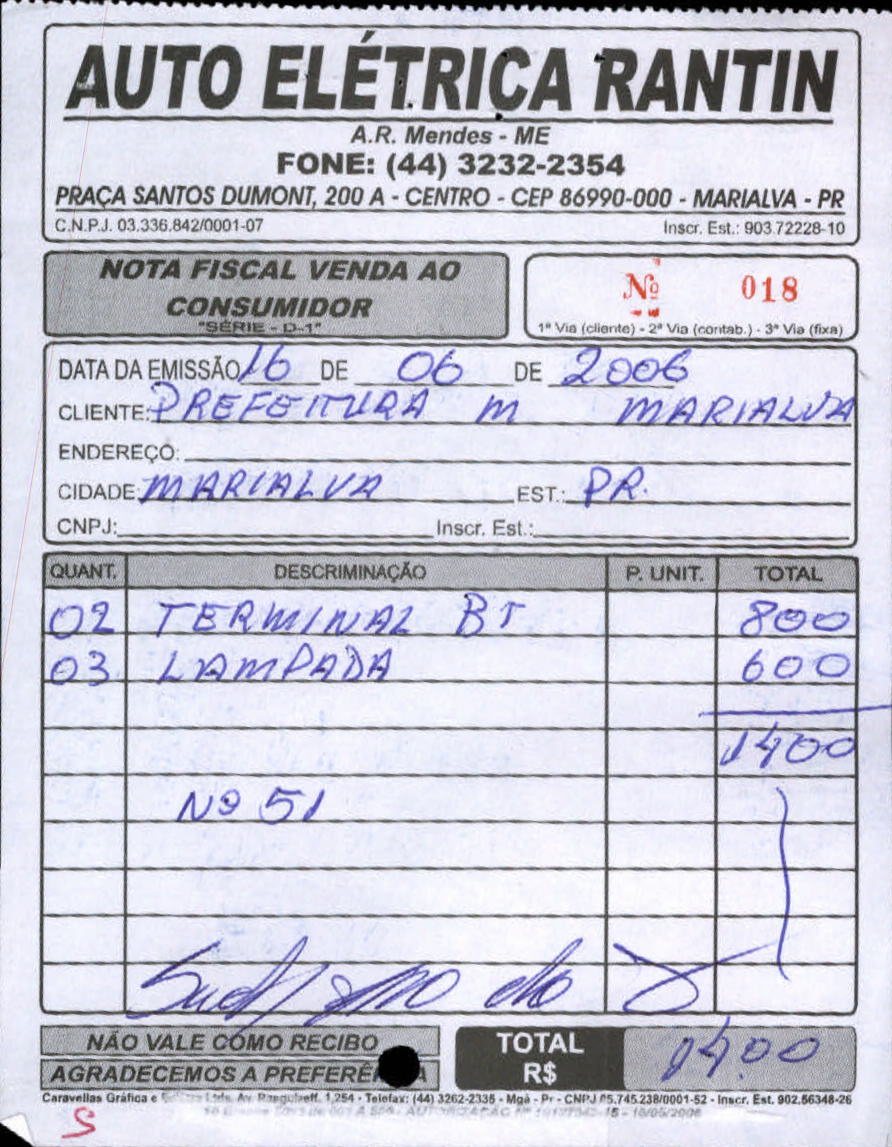 AUTO ELÉTRICA RANTIN
A.R. Mendes - ME
FONE: (44) 3232-2354
PRAÇA SANTOS DUMONT, 200 A - CENTRO - CEP 86990-000 - MARIALVA - PR
C.N.P.J. 03.336.842/0001-07 Inscr. Est.: 903.72228-10
NOTA FISCAL VENDA AO
CONSUMIDOR
"SÉRIE - D-1"
Nº 018
1ª Via (cliente) - 2ª Via (contab.) - 3ª Via (fixa)
DATA DA EMISSÃO 16 DE 06 DE 2006
CLIENTE: PREFEITURA M MARIALVA
ENDEREÇO:
CIDADE: MARIALVA EST.: PR.
CNPJ: Inscr. Est.:
QUANT. DESCRIMINAÇÃO P. UNIT. TOTAL
02 TERMINAL BT 800
03 LAMPADA 600
1400
Nº 51
NÃO VALE COMO RECIBO
AGRADECEMOS A
TOTAL
R$ 1400
Caravellas Gráfica e Ltda. Av. 1.254 - Telefax: (44) 3262-2335 - Mgá - Pr - CNPJ 05.745.238/0001-52 - Inscr. Est. 902.56348-26